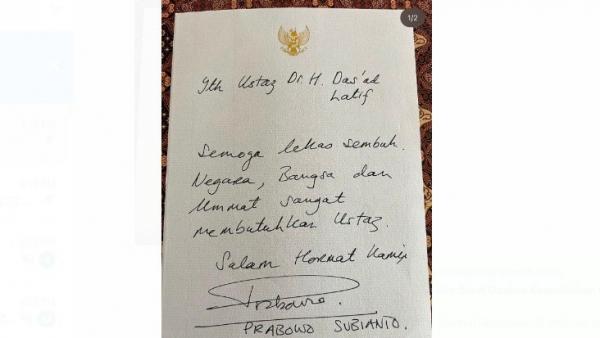 1/2
Yth Ustaz Dr. H. Das'ad
Latif
Semoga lekas sembuh.
Negara, Bangsa dan
Ummat sangat
membutuhkan Ustaz.
Salam Hormat Kami
Prabowo.
PRABOWO SUBIANTO.